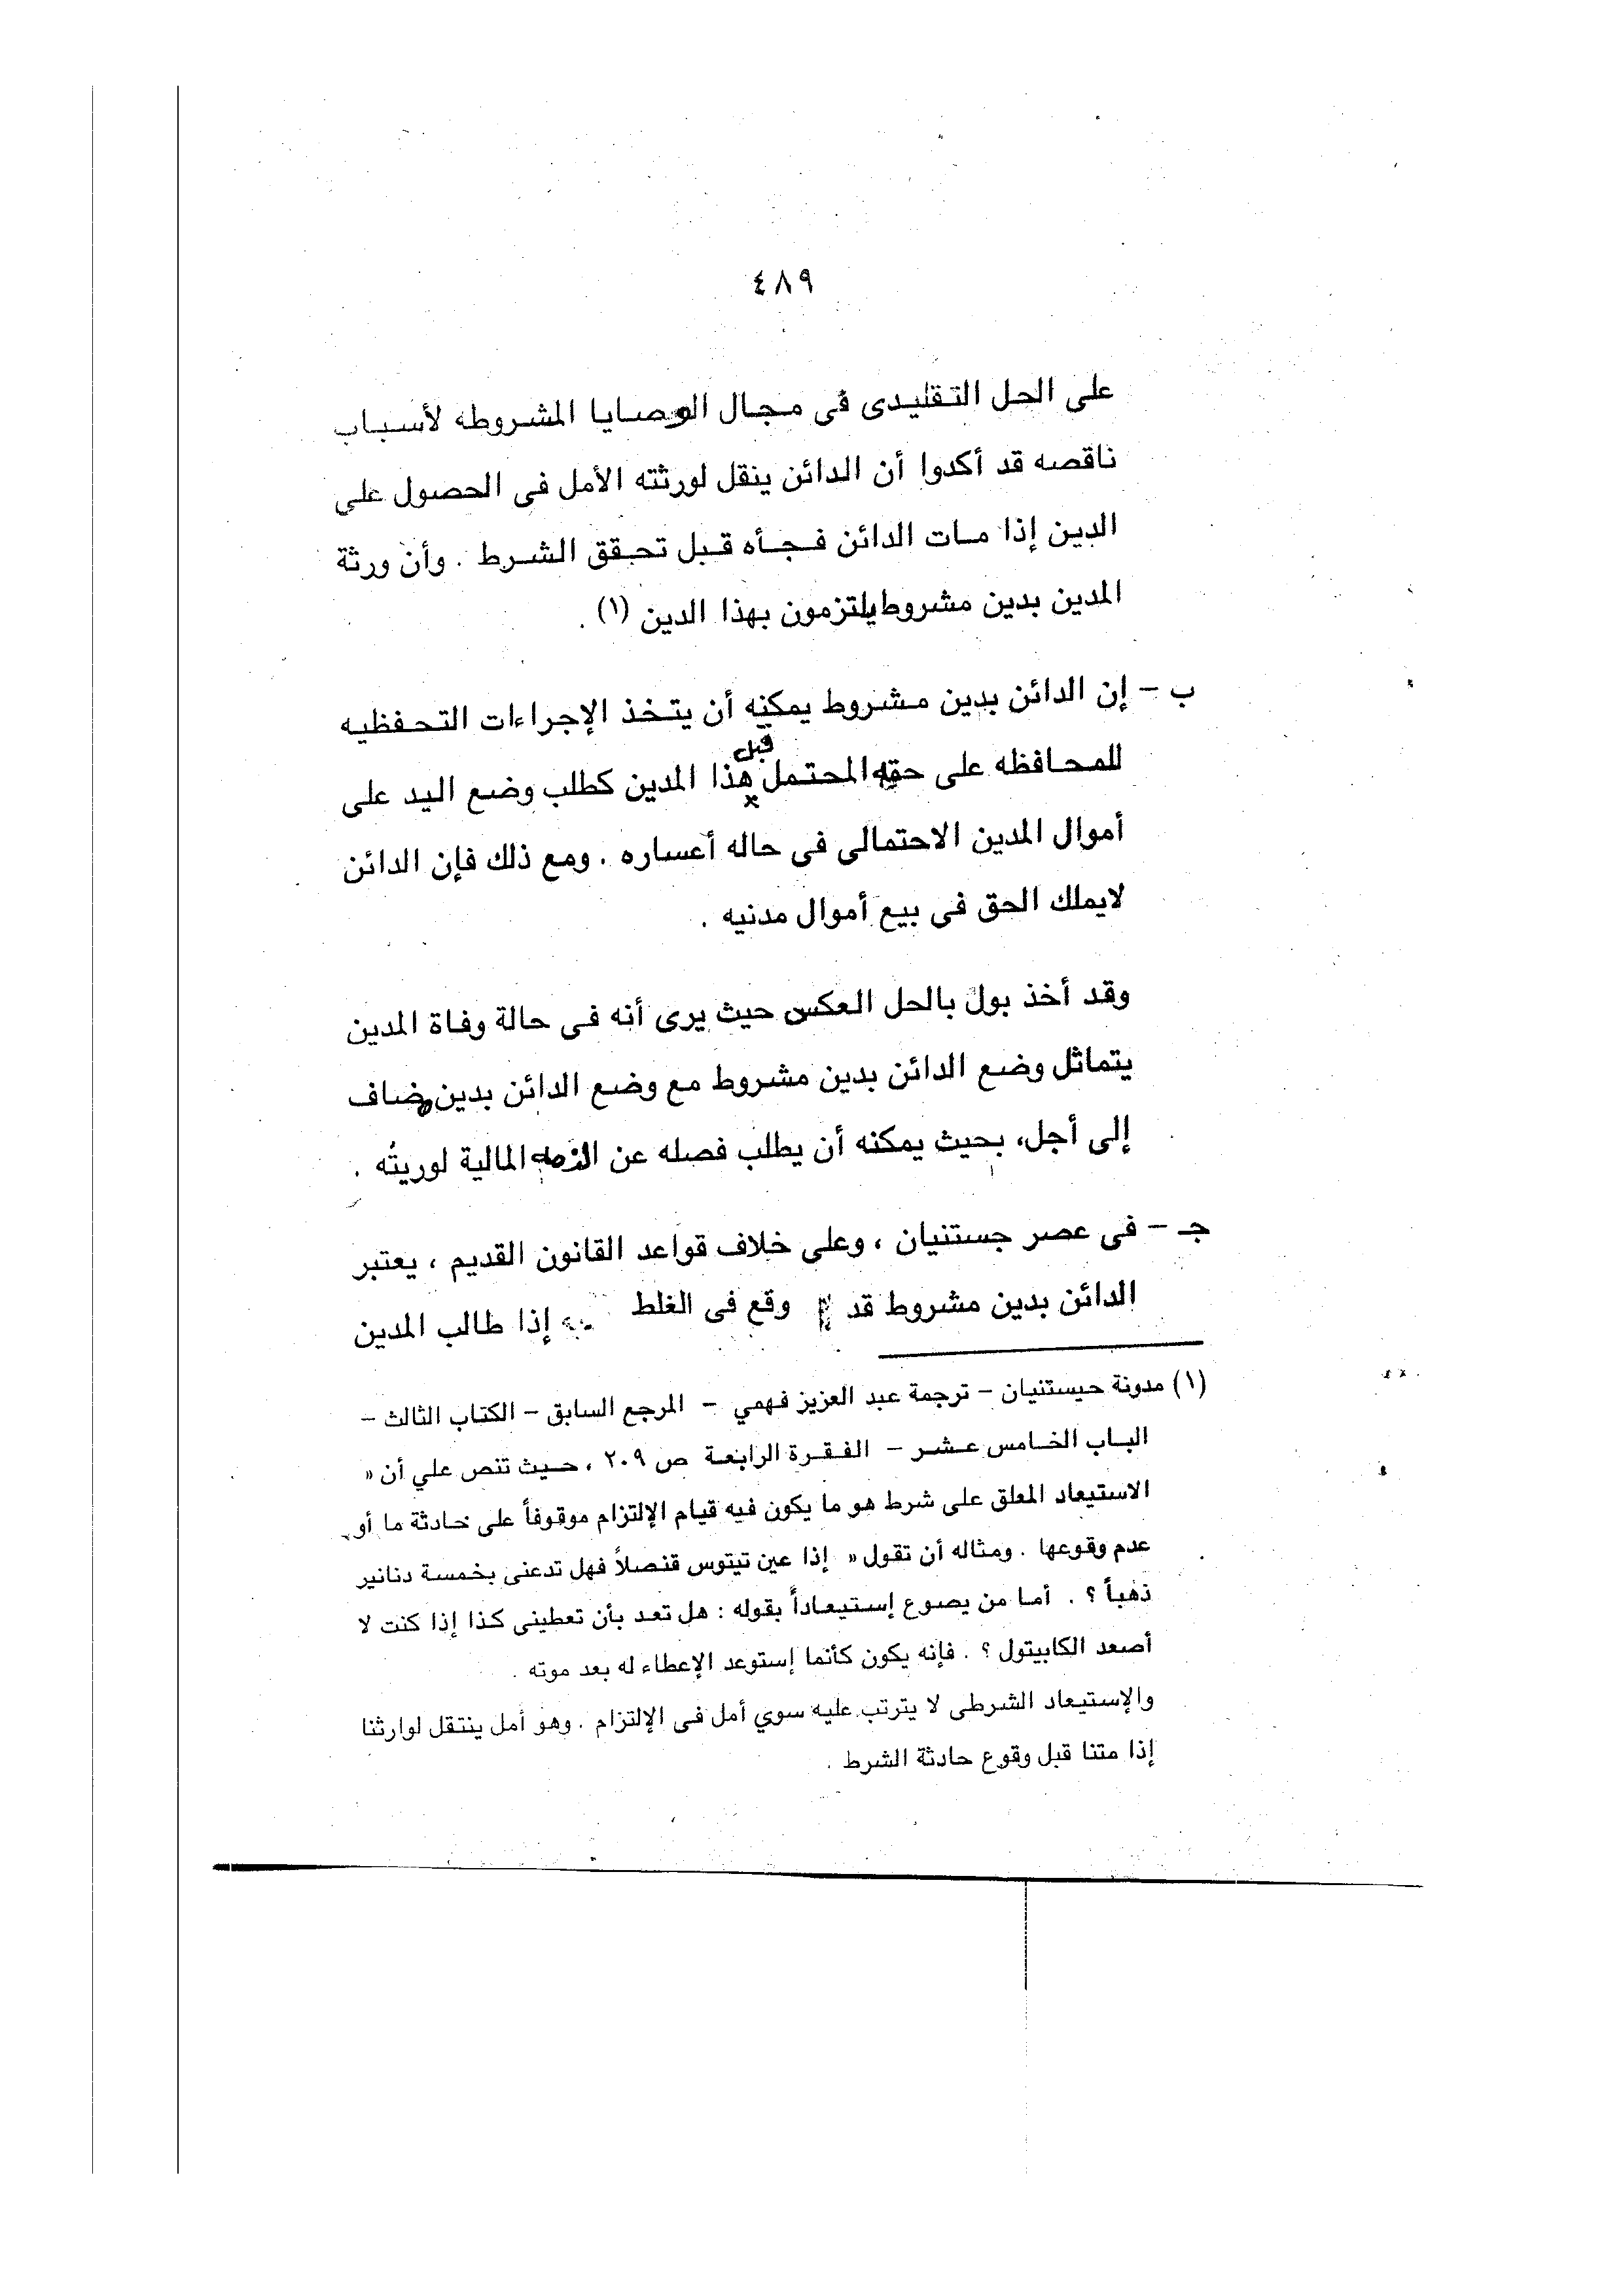 ٤٨٩
على الحل التقليدى فى مجال الوصايا المشروطه لأسباب
ناقصه قد أكدوا أن الدائن ينقل لورثته الأمل فى الحصول علي
الدين إذا مات الدائن فجأه قبل تحقق الشرط . وأن ورثة
المدين بدين مشروط يلتزمون بهذا الدين (١) .
ب - إن الدائن بدين مشروط يمكنه أن يتخذ الإجراءات التحفظيه
للمحافظه على حقه المحتمل قبل هذا المدين كطلب وضع اليد على
أموال المدين الاحتمالى فى حاله أعساره . ومع ذلك فإن الدائن
لايملك الحق فى بيع أموال مدنيه .
وقد أخذ بول بالحل العكس حيث يرى أنه فى حالة وفاة المدين
يتماثل وضع الدائن بدين مشروط مع وضع الدائن بدين مضاف
إلى أجل، بحيث يمكنه أن يطلب فصله عن الذمه المالية لوريثه .
جـ - فى عصر جستنيان ، وعلى خلاف قواعد القانون القديم ، يعتبر
الدائن بدين مشروط قد وقع فى الغلط إذا طالب المدين
(١) مدونة حيستنيان - ترجمة عبد العزيز فهمي - المرجع السابق - الكتاب الثالث -
الباب الخامس عشر - الفقرة الرابعة ص ٢٠٩ ، حيث تنص علي أن «
الاستيعاد المعلق على شرط هو ما يكون فيه قيام الإلتزام موقوفاً على حادثة ما أو
عدم وقوعها . ومثاله أن تقول « إذا عين تيتوس قنصلاً فهل تدعنى بخمسة دنانير
ذهباً ؟ . أما من يصوع إستيعاداً بقوله : هل تعد بأن تعطينى كذا إذا كنت لا
أصعد الكابيتول ؟ . فإنه يكون كأنما إستوعد الإعطاء له بعد موته .
والإستيعاد الشرطى لا يترتب عليه سوي أمل فى الإلتزام . وهو أمل ينتقل لوارثنا
إذا متنا قبل وقوع حادثة الشرط .